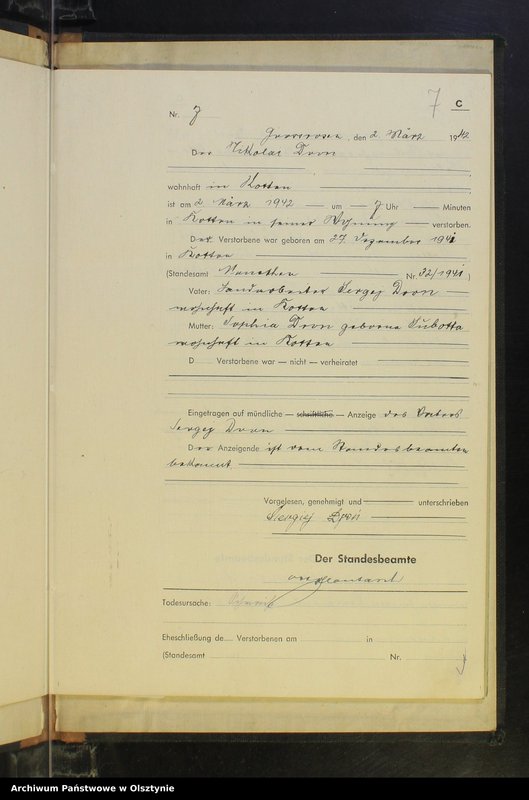 7
C
Nr. 7
den 2. März 1942
Der Nikolai Dron
wohnhaft in Kotten
ist am 2 März 1942 um 7 Uhr Minuten
in Kotten in seiner Wohnung verstorben.
Der Verstorbene war geboren am 27. Dezember 1941
in Kotten
(Standesamt Nr. 32/1941)
Vater: Landarbeiter Sergej Dron
wohnhaft in Kotten
Mutter: Sophia Dron geborene Subotta
wohnhaft in Kotten
D Verstorbene war — nicht — verheiratet
Eingetragen auf mündliche — schriftliche — Anzeige des Vaters
Sergej Dron
Der Anzeigende ist dem Standesbeamten
bekannt
Vorgelesen, genehmigt und unterschrieben
Der Standesbeamte
Todesursache:
Eheschließung de Verstorbenen am in
(Standesamt Nr.
Archiwum Państwowe w Olsztynie